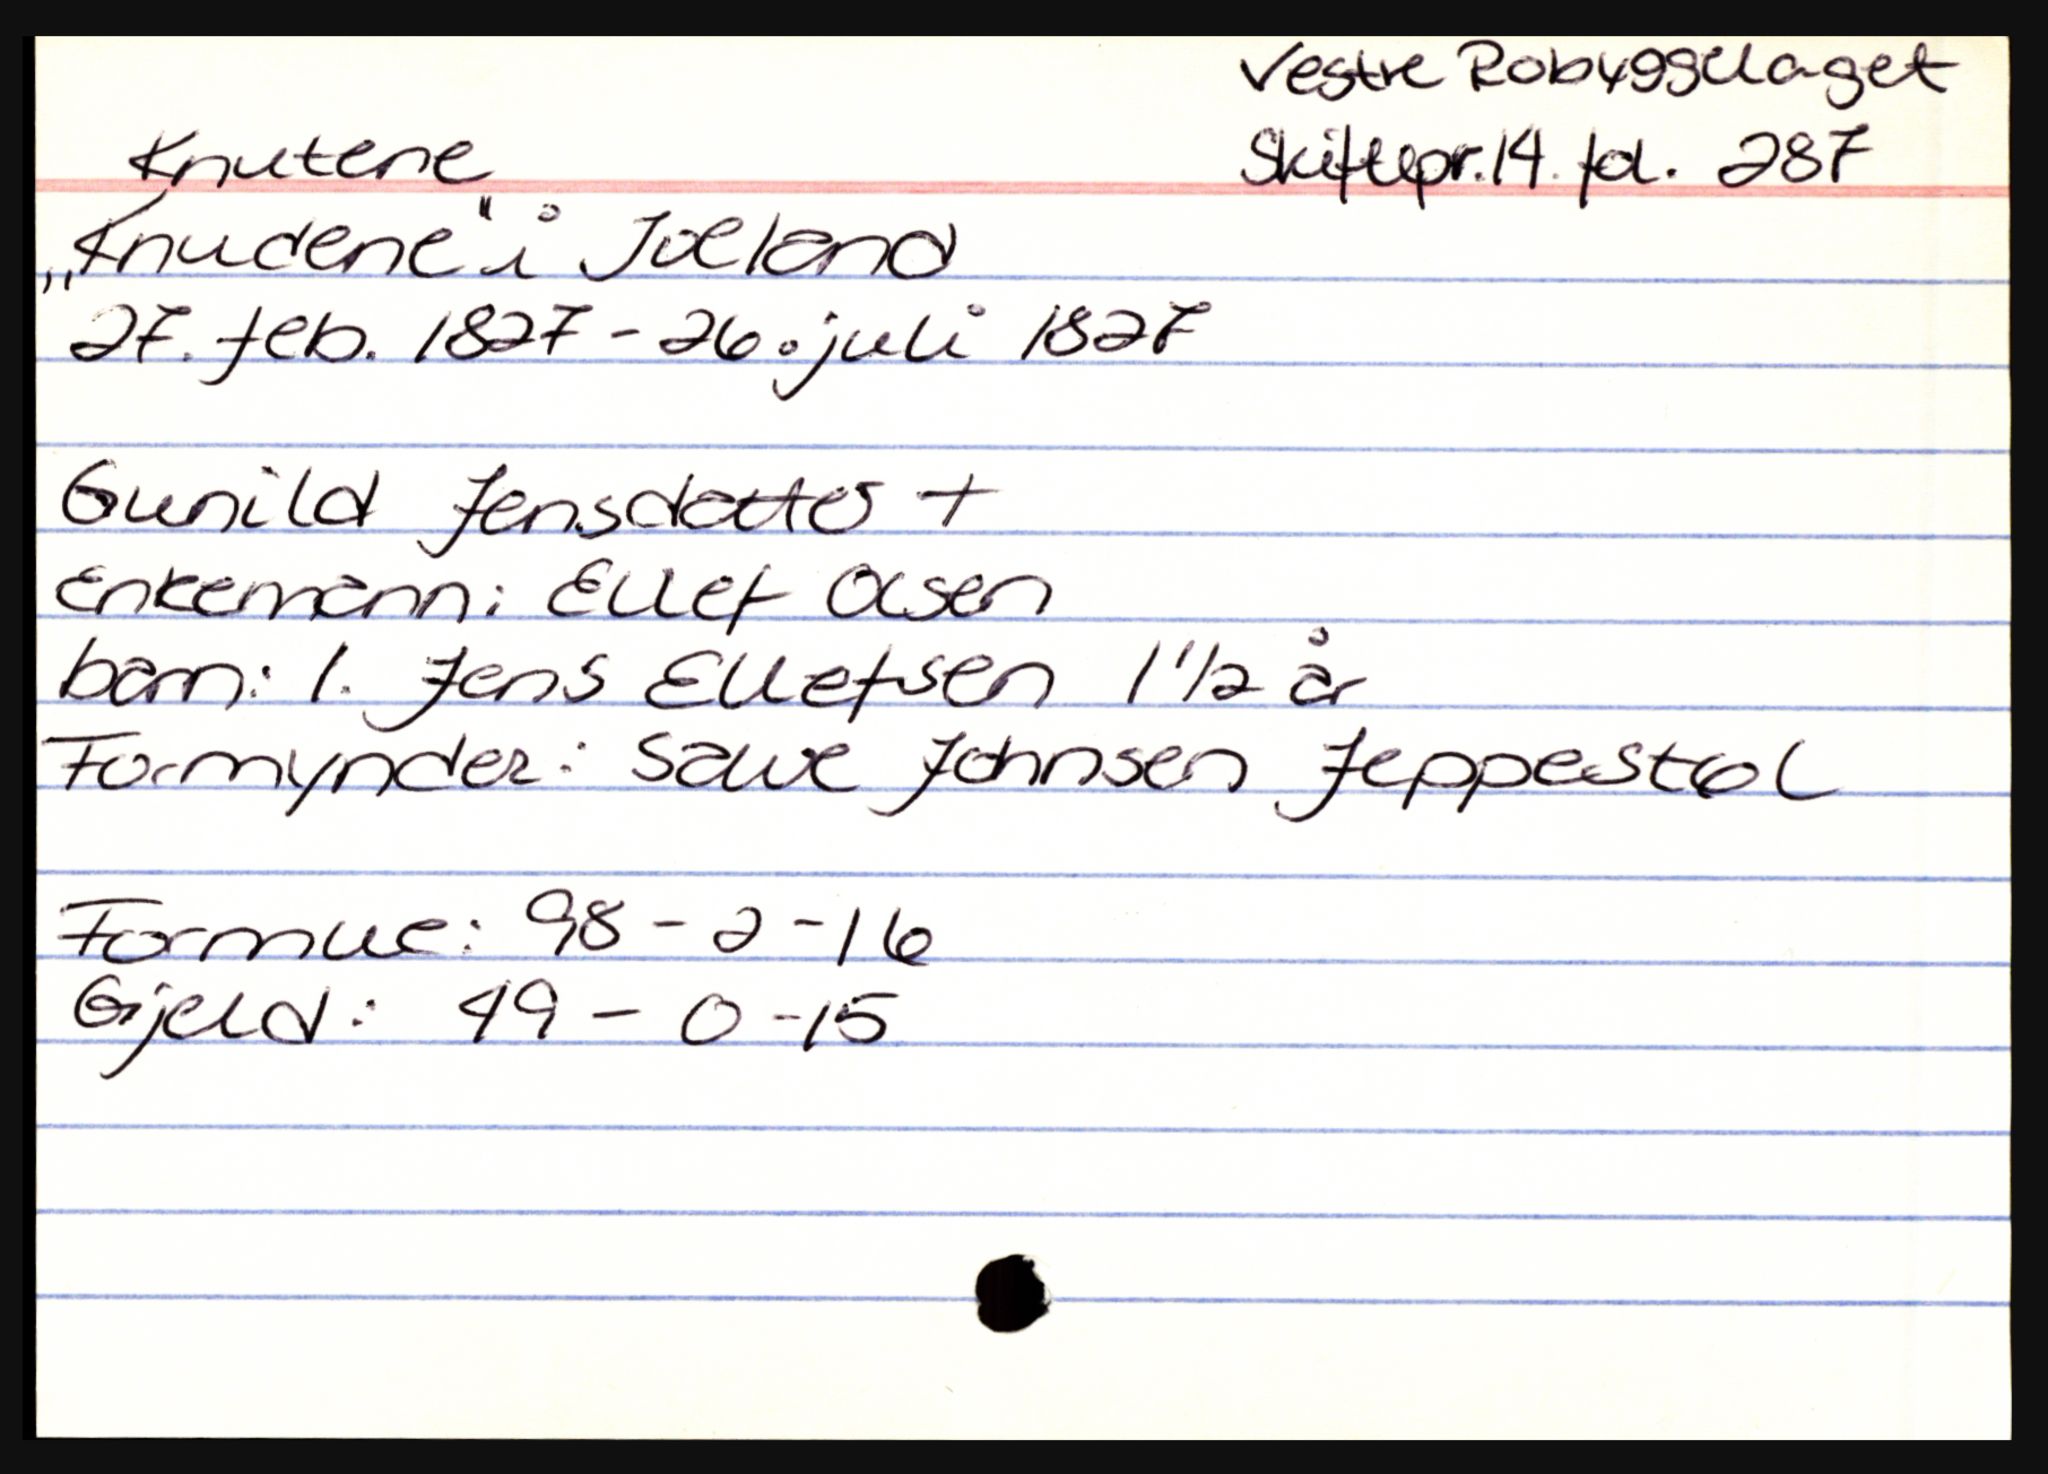 Vestre Robyggelaget
Skiftepr. 14. fol. 287
Knutene
„Knudene" i Iveland
27. feb. 1827 - 26. juli 1827
Gunild Jensdatter +
Enkemann: Ellef Olsen
barn: 1. Jens Ellefsen 1 1/2 år
Formynder: Salve Johnsen Jeppestøl
Formue: 98 - 2 - 16
Gjeld: 49 - 0 - 15